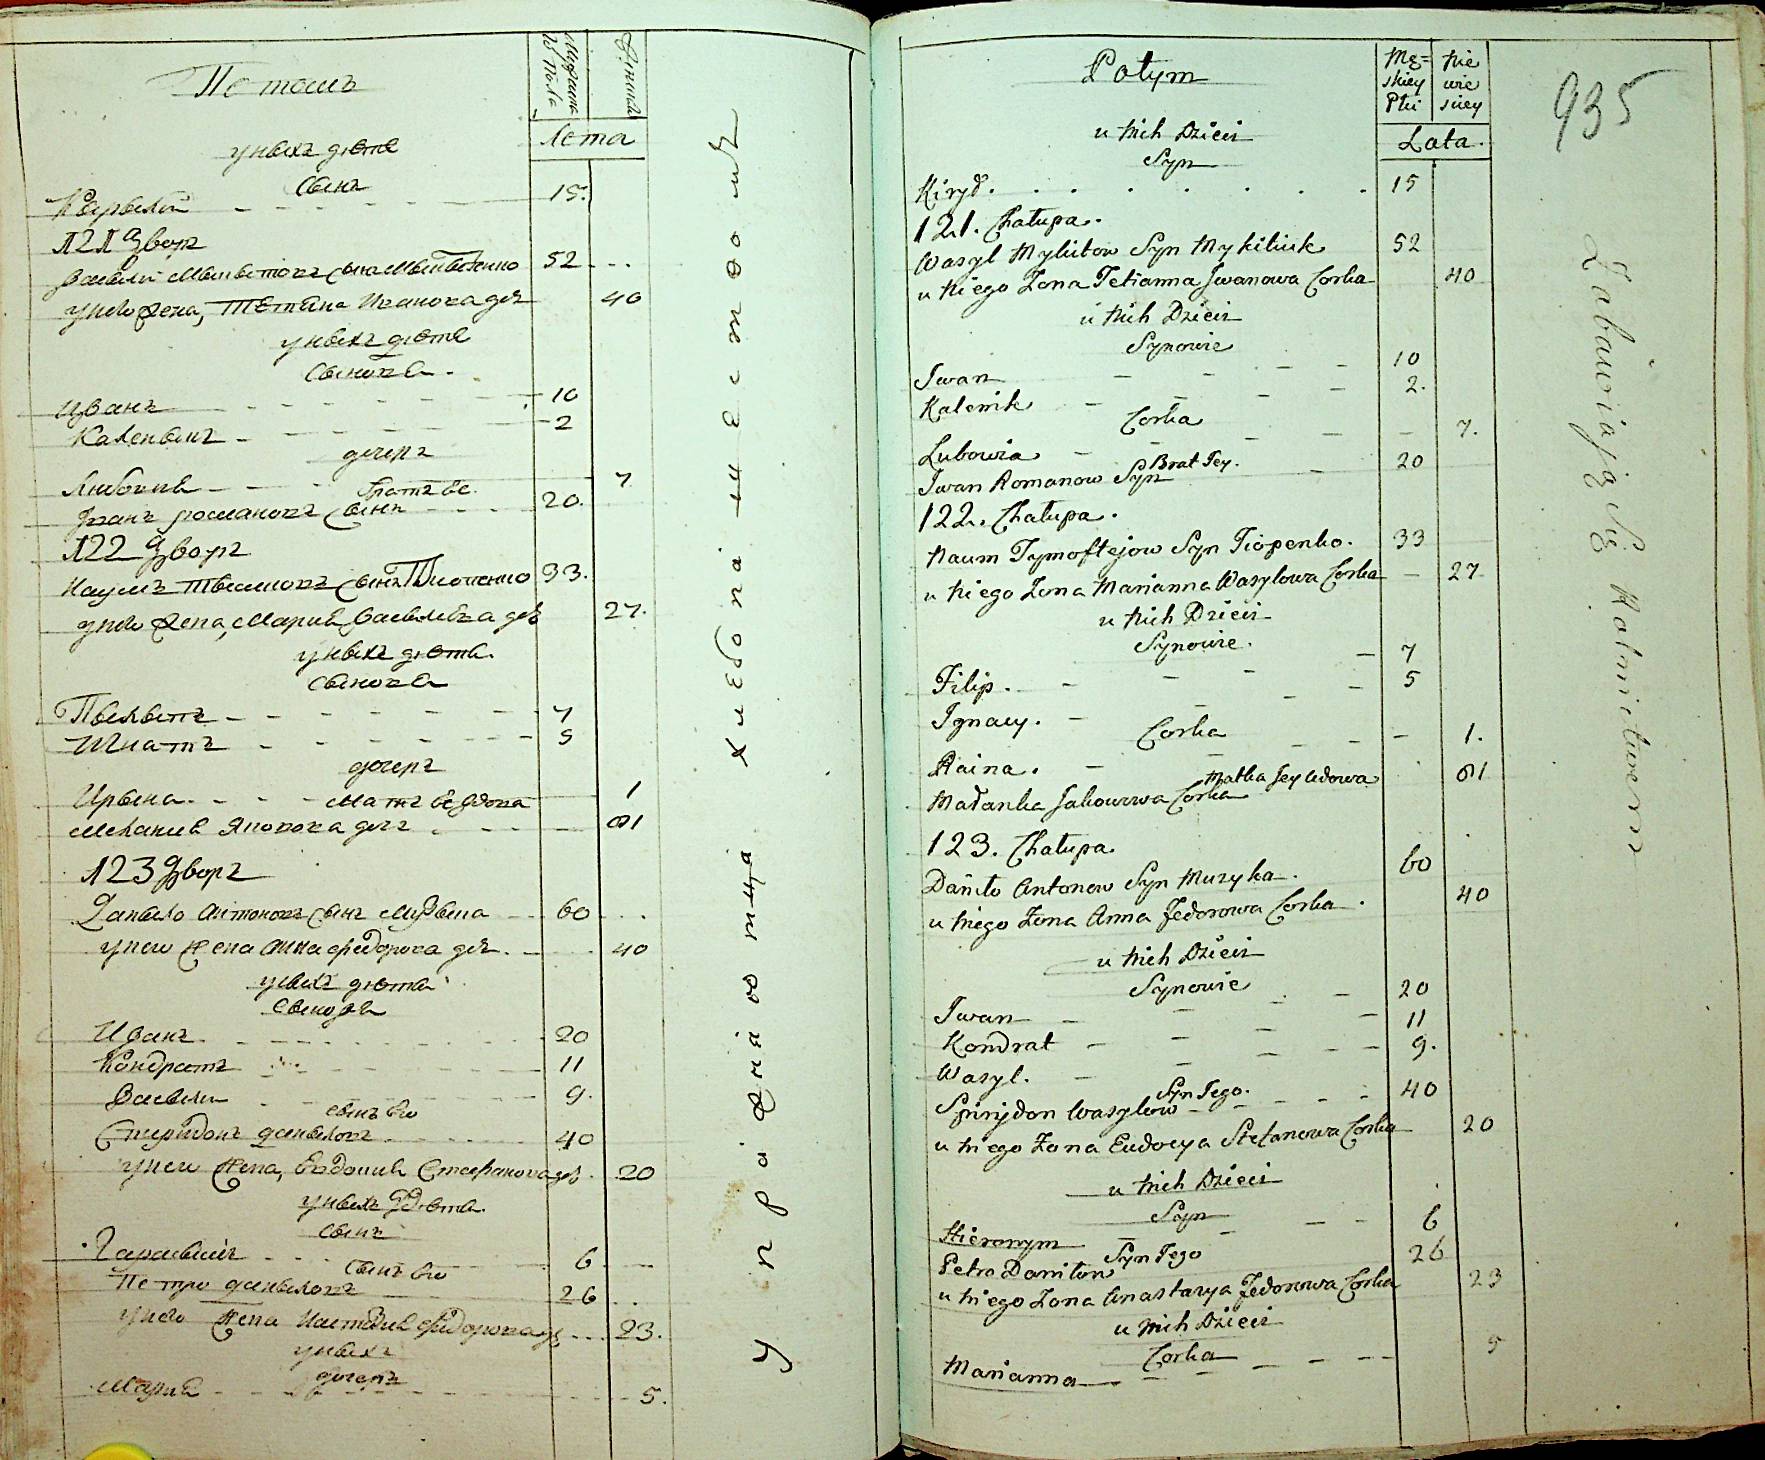 Потомъ
Мужеска Пола
Женска
Лета
у ныхъ дѣте
сынъ
Кирылъ 15.
121 Дворъ
Василъ Мыкытовъ сынъ 52
у него Жена, Тетяна Иванова доч 40
у ныхъ дѣте
сынове
Иванъ 10
Каленыкъ 2
дочерь
Любовия 7
братъ ее.
Иванъ Романовъ сынъ 20.
122 Дворъ
Наумъ Тымофовъ сынъ Тюпенко 33.
у него Жена, Мария Василева доч 27.
у ныхъ дѣте.
сынове
Пылыпъ 7
Игнатъ 5
дочерь
Ирына 1
мать ее вдова
Мелания Яковова доч 61
123 Дворъ
Даныло Антоновъ сынъ Музыка 60
у него Жена Анна Федорова доч 40
у ныхъ дѣте
сынове
Иванъ 20
Кондратъ 11
Василъ 9.
сынъ его
Спиридонъ Даныловъ 40
у него Жена, Евдокия Стефанова доч 20
у ныхъ дѣте
сынъ
Гарасымъ 6
сынъ его
Петро Даныловъ 26
у него Жена Настасия Федорова доч 23.
у ныхъ
дочерь
Мария 5.
упражняются хлебопашеством
Potym
Męskiey Płci
Niewieściey
Lata.
u Nich Dzieci
Syn
Kirył. 15
121. Chałupa.
Wasyl Mykitow Syn Mykitiuk 52
u Niego Żona Tetianna Jwanowa Corka 40
u Nich Dzieci
Synowie
Jwan 10
Kalenik 2.
Corka
Lubowia 7.
Brat Jey.
Jwan Romanow Syn 20
122. Chałupa.
Naum Tymoftejow Syn Tiopenko. 33
u Niego Żona Marianna Wasylowa Corka 27
u Nich Dzieci
Synowie.
Filip. 7
Ignacy. 5
Corka
Raina. 1.
Matka Jey Wdowa
Małanka Jakowowa Corka 61
123. Chałupa.
Daniło Antonow Syn Muzyka. 60
u Niego Żona Anna Fedorowa Corka. 40
u Nich Dzieci
Synowie
Jwan 20
Kondrat 11
Wasyl. 9.
Syn Jego.
Spirydon Wasylow 40
u Niego Żona Eudocya Stefanowa Corka 20
u Nich Dzieci
Syn
Hieronym 6
Syn Jego
Petro Daniłow 26
u Niego Żona Anastazya Fedorowa Corka 23
u Nich Dzieci
Corka
Marianna 5
935
Zabawiają Się Rolnictwem